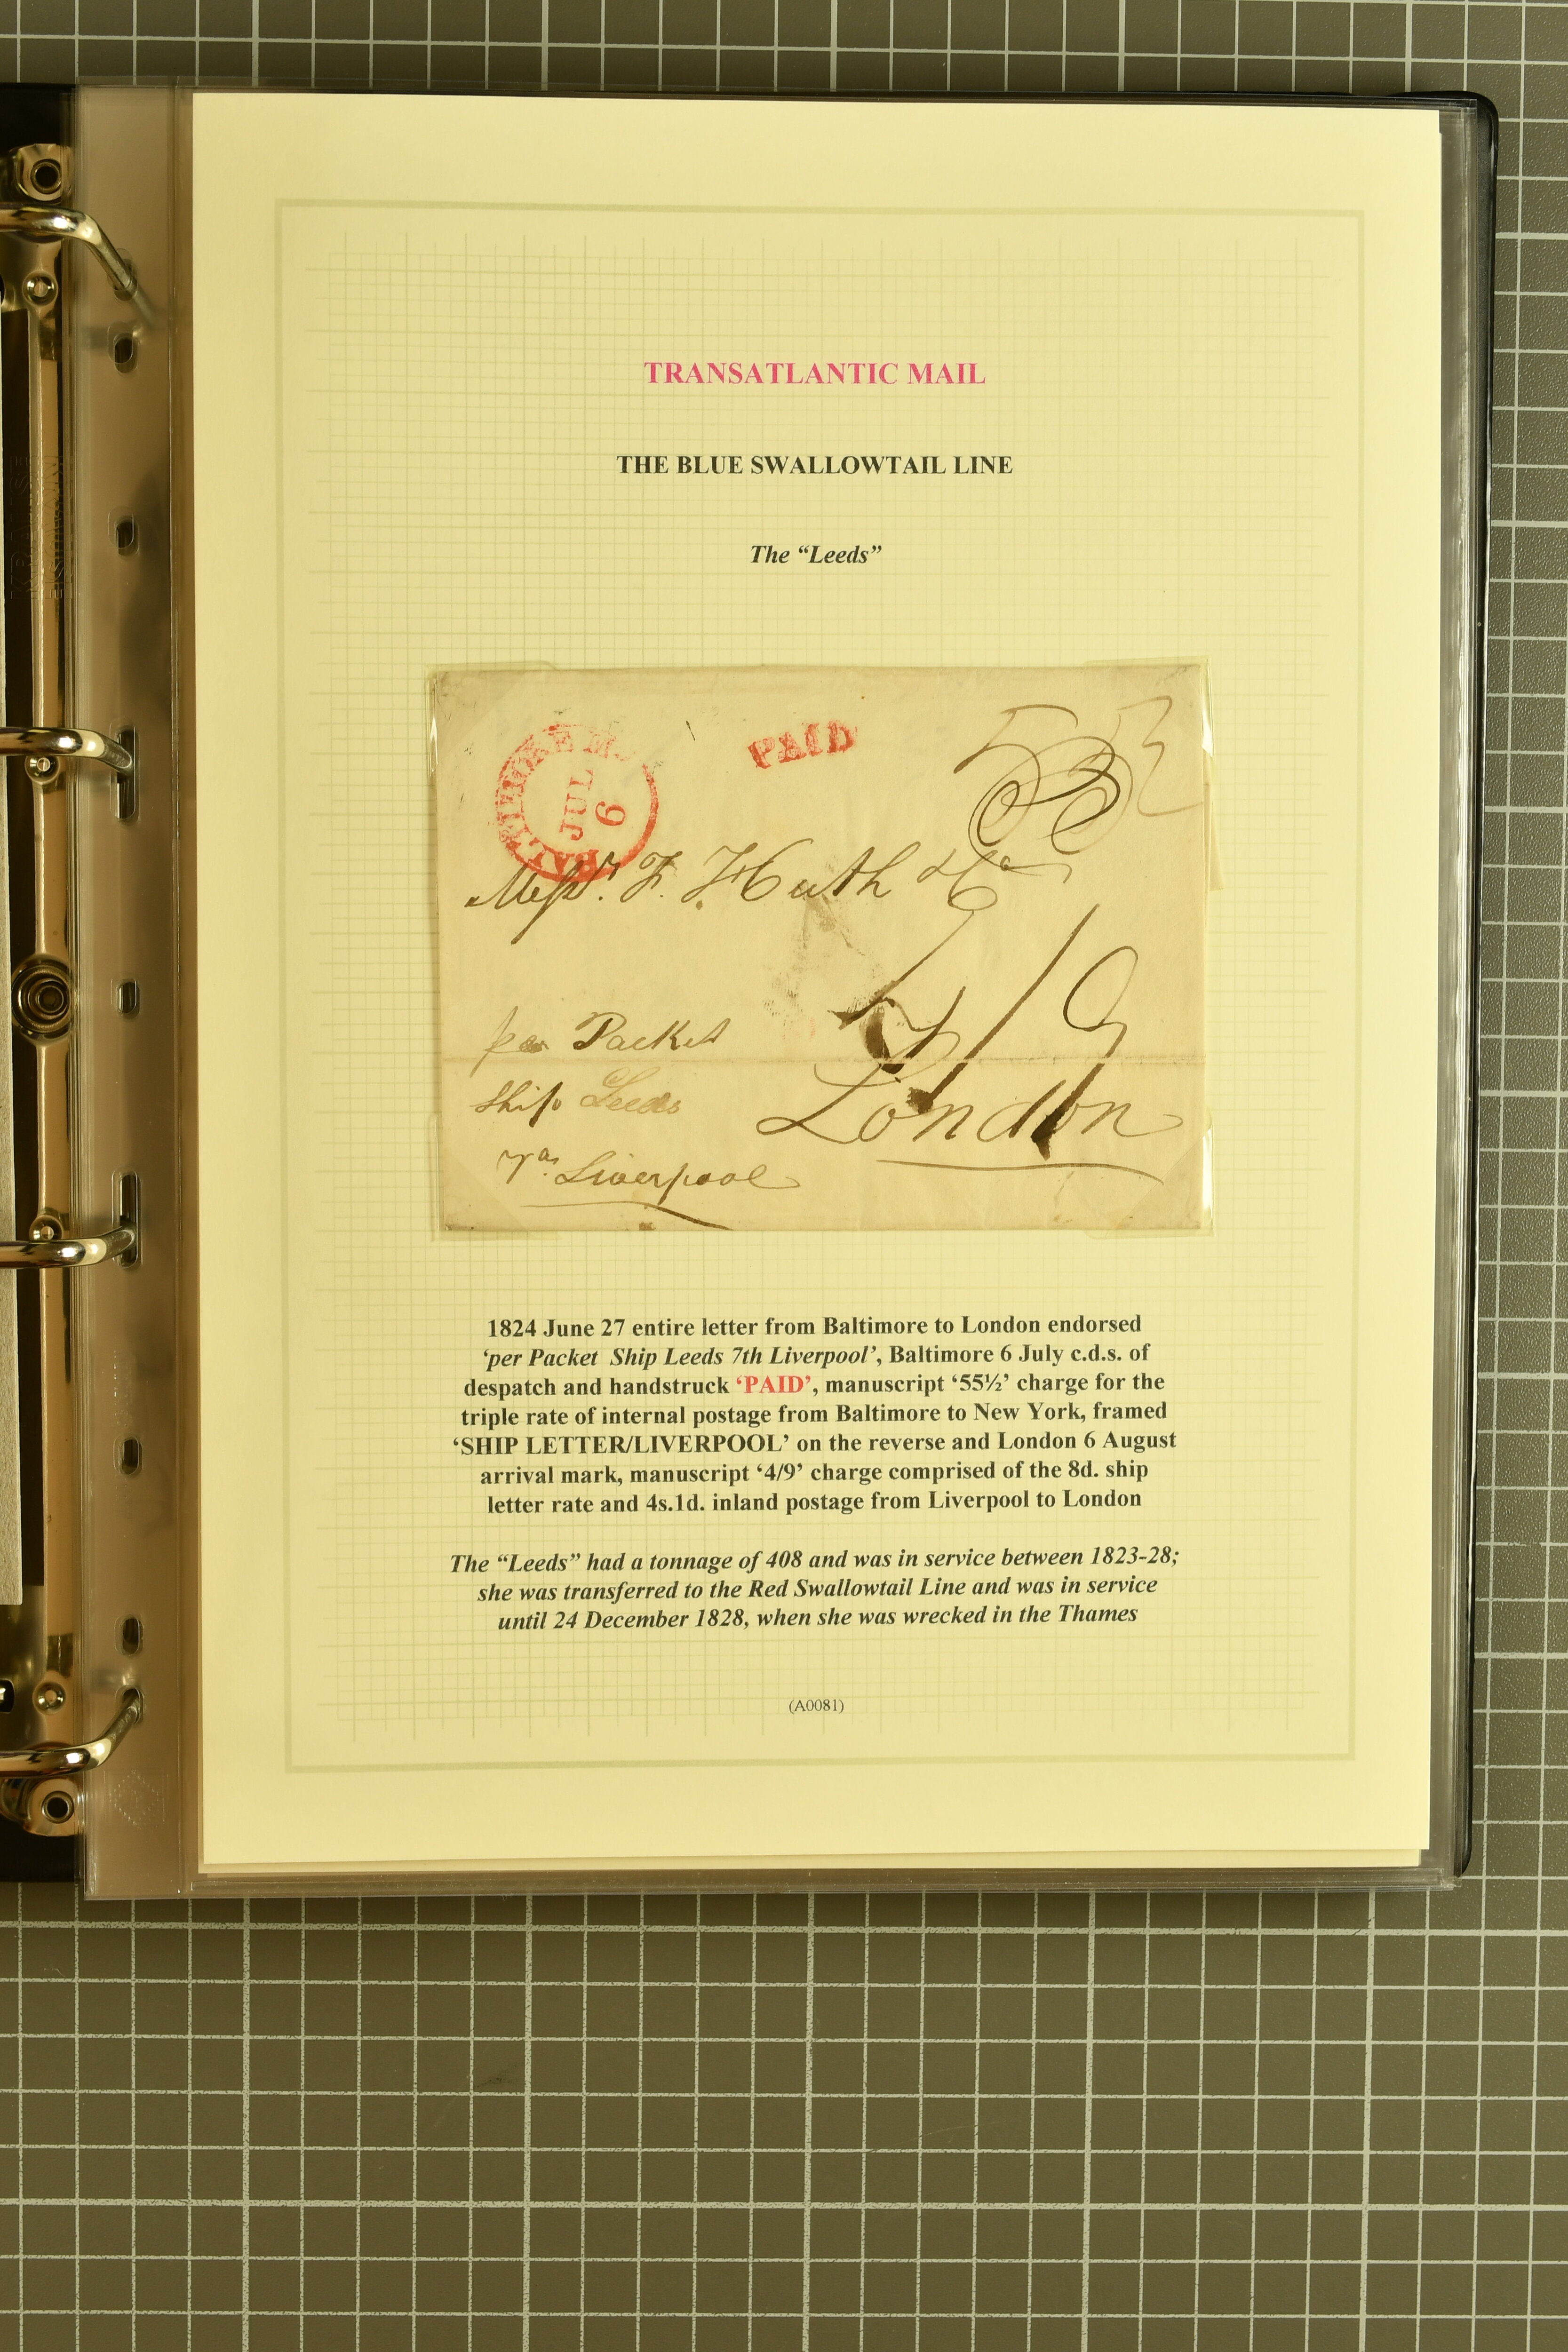 TRANSATLANTIC MAIL
THE BLUE SWALLOWTAIL LINE
The “Leeds”
BALTIMORE MD
JUL
6
PAID
55½
Messrs. F. Huth & Co
4/9
per Packet
Ship Leeds
London
Liverpool
1824 June 27 entire letter from Baltimore to London endorsed
‘per Packet Ship Leeds 7th Liverpool’, Baltimore 6 July c.d.s. of
despatch and handstruck ‘PAID’, manuscript ‘55½’ charge for the
triple rate of internal postage from Baltimore to New York, framed
‘SHIP LETTER/LIVERPOOL’ on the reverse and London 6 August
arrival mark, manuscript ‘4/9’ charge comprised of the 8d. ship
letter rate and 4s.1d. inland postage from Liverpool to London
The “Leeds” had a tonnage of 408 and was in service between 1823-28;
she was transferred to the Red Swallowtail Line and was in service
until 24 December 1828, when she was wrecked in the Thames
(A0081)